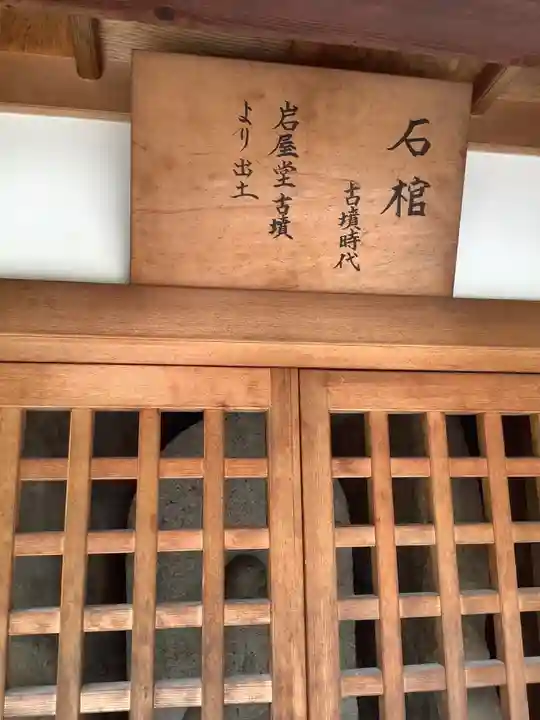 石棺
古墳時代
岩屋堂古墳
より出土